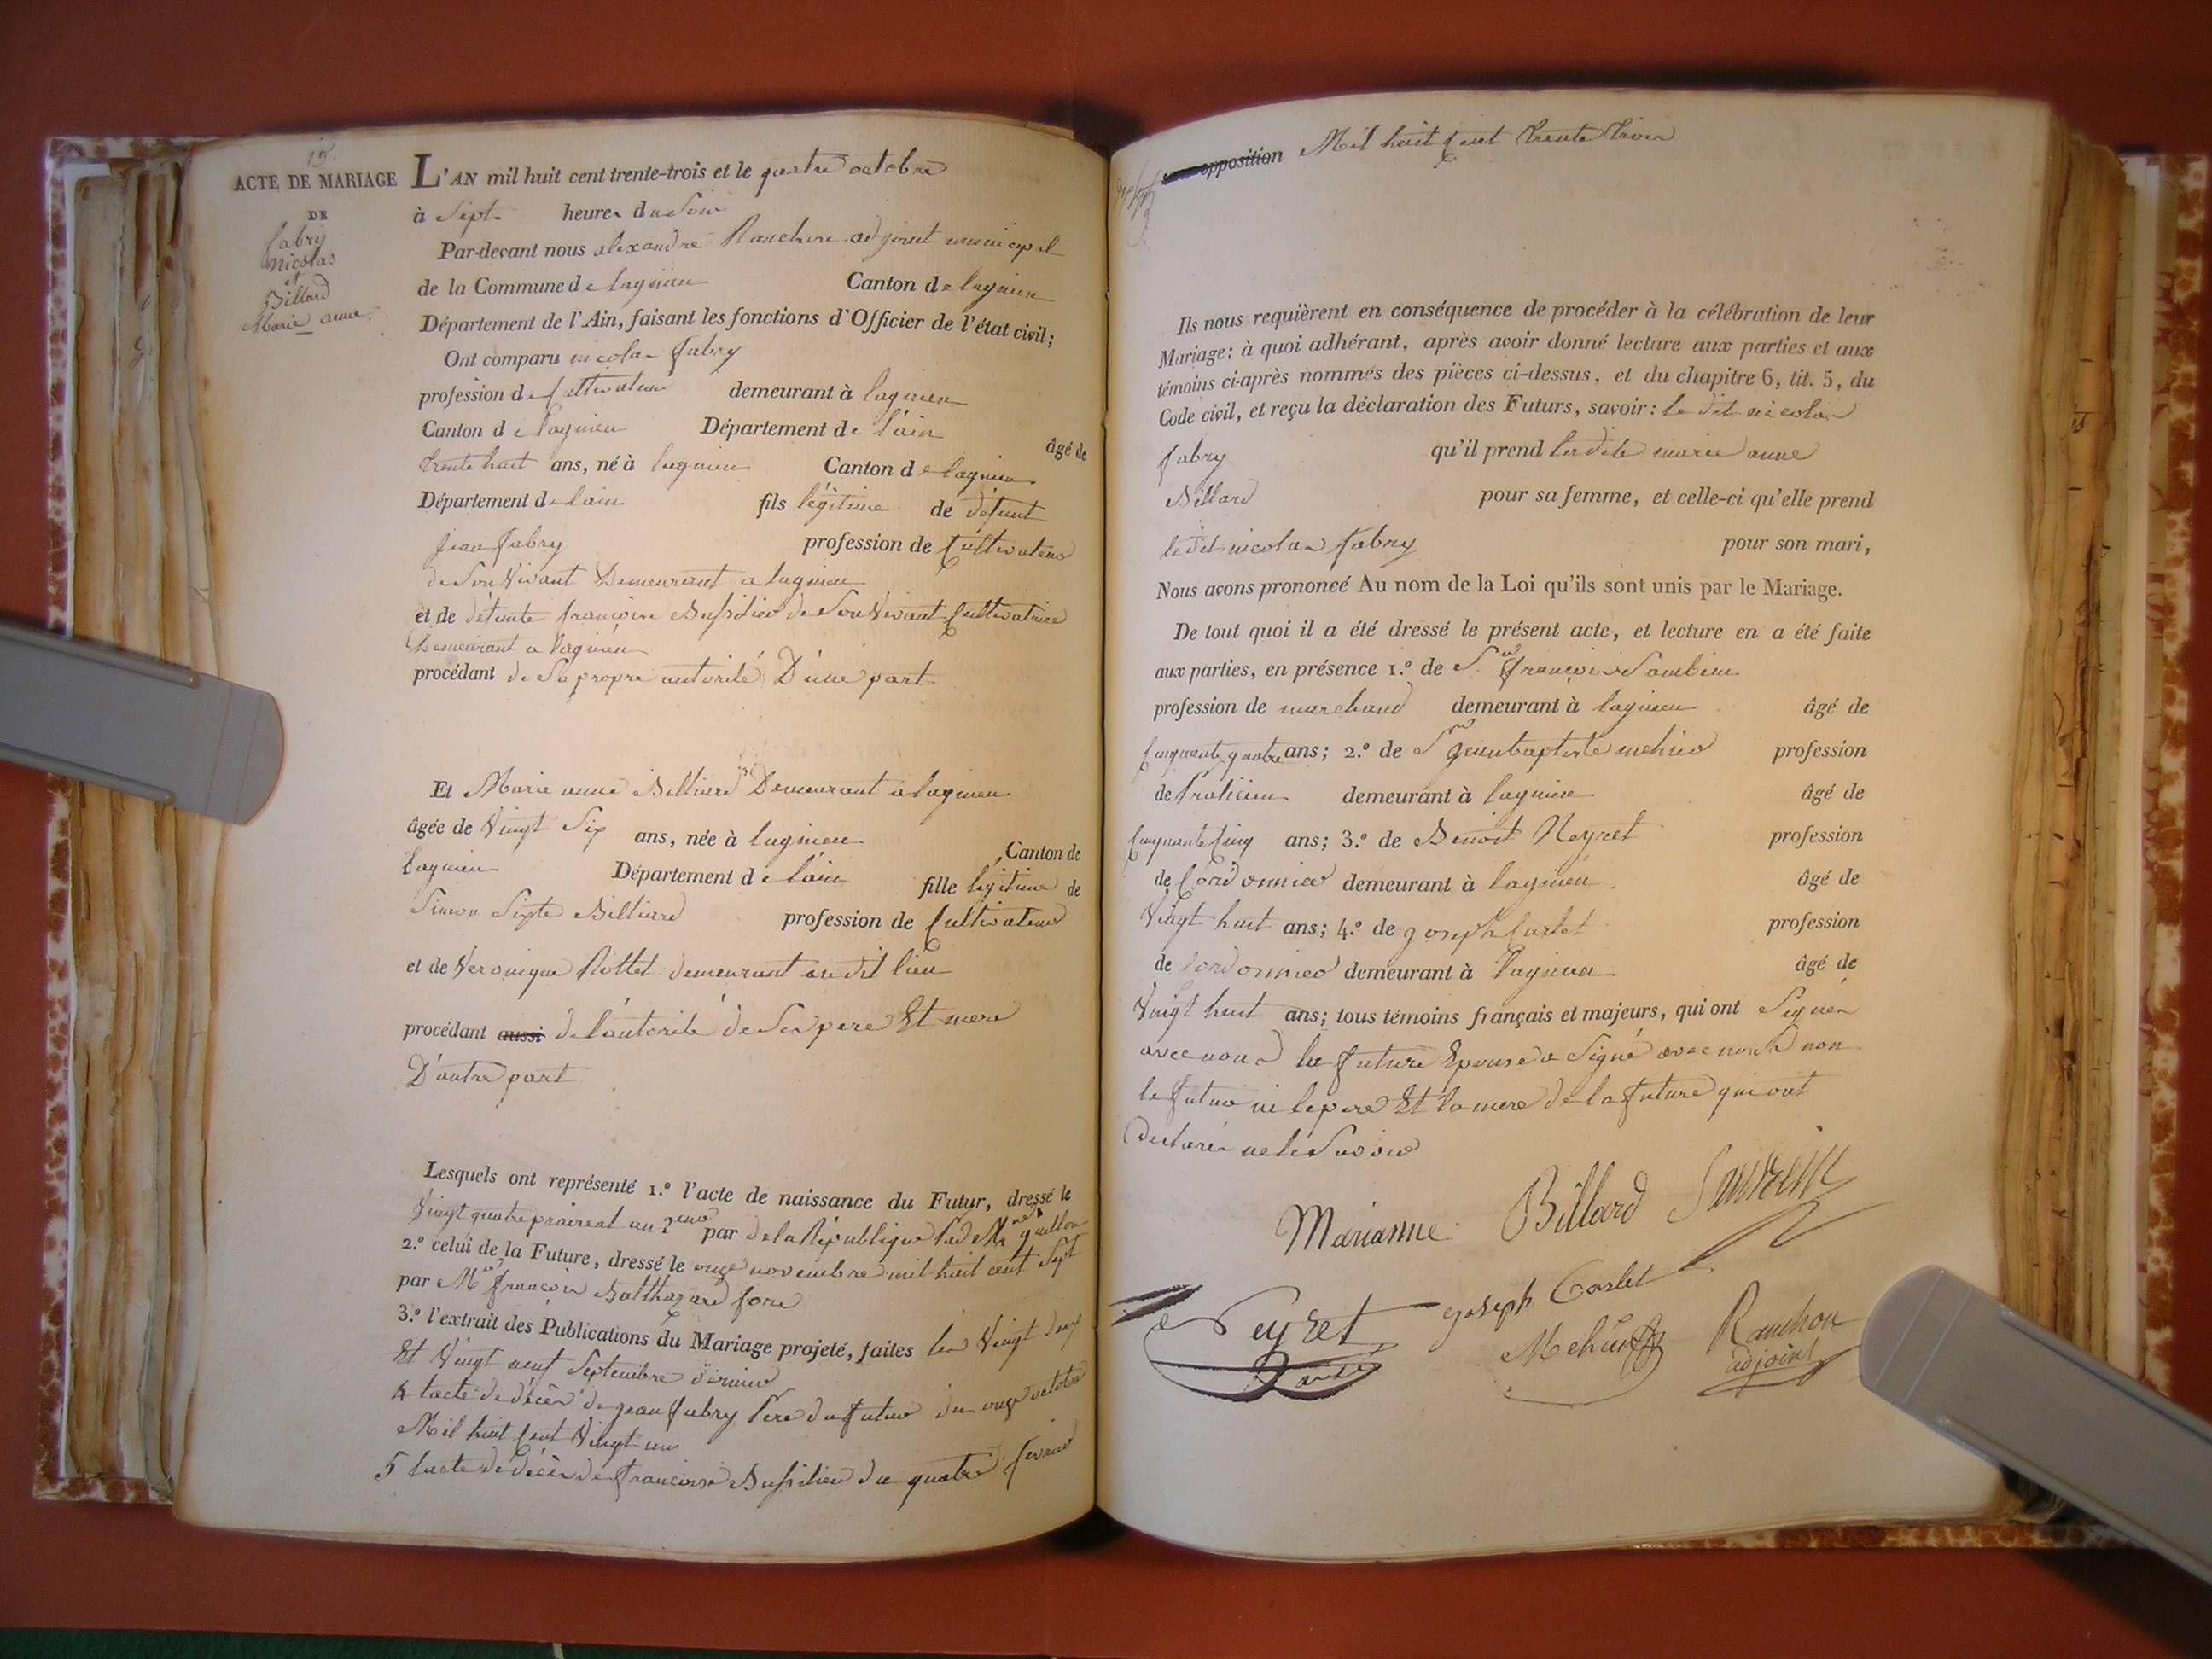 15
ACTE DE MARIAGE
DE
fabry
nicolas
et
Billard
Marie anne
L'AN mil huit cent trente-trois et le quatre octobre
à Sept heures du Soir
Par-devant nous alexandre Ranchon adjoint municipal
de la Commune de lagnieu Canton de lagnieu
Département de l'Ain, faisant les fonctions d'Officier de l'état civil;
Ont comparu nicolas fabry
profession de Cultivateur demeurant à lagnieu
Canton de lagnieu Département de l'ain âgé de
trente huit ans, né à lagnieu Canton de lagnieu
Département de lain fils légitime de défunt
jean fabry profession de Cultivateur
de Son Vivant Demeurant a lagnieu
et de défunte françoise Bussilier de Son Vivant Cultivatrice
Demeurant a lagnieu
procédant de Sa propre autorité D'une part
Et Marie anne Billiard Demeurant a lagnieu
âgée de Vingt Six ans, née à lagnieu Canton de
lagnieu Département de l'ain fille légitime de
Simon Sixte Billiard profession de Cultivateur
et de Veronique Rottet demeurant au dit lieu
procédant aussi de l'autorité de Ses pere Et mere
D'autre part
Lesquels ont représenté 1.º l'acte de naissance du Futur, dressé le
Vingt quatre prairial an par de la République
2.º celui de la Future, dressé le onze novembre mil huit cent Sept
par Mr françois Balthazard
3.º l'extrait des Publications du Mariage projeté, faites les Vingt deux
Et Vingt neuf Septembre dernier
4 lacte de décès de jean fabry Pere du futur du onze octobre
Mil huit Cent Vingt un
5 lacte de décès de françoise Bussilier du quatre fevrier
opposition Mil huit Cent trente trois
Ils nous requièrent en conséquence de procéder à la célébration de leur
Mariage; à quoi adhérant, après avoir donné lecture aux parties et aux
témoins ci-après nommés des pièces ci-dessus, et du chapitre 6, tit. 5, du
Code civil, et reçu la déclaration des Futurs, savoir: le dit nicolas
fabry qu'il prend ladite marie anne
Billard pour sa femme, et celle-ci qu'elle prend
le dit nicolas fabry pour son mari,
Nous avons prononcé Au nom de la Loi qu'ils sont unis par le Mariage.
De tout quoi il a été dressé le présent acte, et lecture en a été faite
aux parties, en présence 1.º de Sr françois
profession de marchand demeurant à lagnieu âgé de
Cinquante quatre ans; 2.º de Sr jean baptiste mehier profession
de Praticien demeurant à lagnieu âgé de
Cinquante Cinq ans; 3.º de Benoit Neyret profession
de Cordonnier demeurant à lagnieu âgé de
Vingt huit ans; 4.º de joseph Carlet profession
de Cordonnier demeurant à lagnieu âgé de
Vingt huit ans; tous témoins français et majeurs, qui ont Signés
avec nous la future Epouse a Signé avec nous non
le futur ni le pere Et la mere de la future qui ont
declarés ne le Savoir
Marianne Billard
Neyret joseph Carlet Mehier Ranchon
adjoint